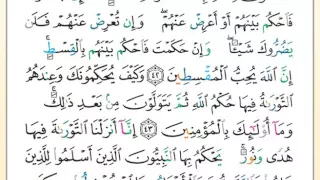 فَٱحْكُم بَيْنَهُمْ أَوْ أَعْرِضْ عَنْهُمْ ۖ وَإِن تُعْرِضْ عَنْهُمْ فَلَن
يَضُرُّوكَ شَيْـًٔا ۖ وَإِنْ حَكَمْتَ فَٱحْكُم بَيْنَهُم بِٱلْقِسْطِ ۚ
إِنَّ ٱللَّهَ يُحِبُّ ٱلْمُقْسِطِينَ ٤٢ وَكَيْفَ يُحَكِّمُونَكَ وَعِندَهُمُ
ٱلتَّوْرَىٰةُ فِيهَا حُكْمُ ٱللَّهِ ثُمَّ يَتَوَلَّوْنَ مِنۢ بَعْدِ ذَٰلِكَ ۚ
وَمَآ أُو۟لَـٰٓئِكَ بِٱلْمُؤْمِنِينَ ٤٣ إِنَّآ أَنزَلْنَا ٱلتَّوْرَىٰةَ فِيهَا
هُدًى وَنُورٌ ۚ يَحْكُمُ بِهَا ٱلنَّبِيُّونَ ٱلَّذِينَ أَسْلَمُوا۟ لِلَّذِينَ